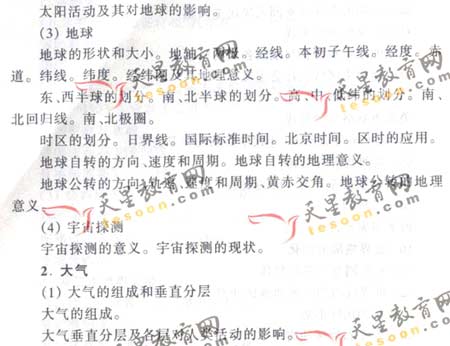 太阳活动及其对地球的影响。
(3) 地球
地球的形状和大小。地轴。两极。经线。本初子午线。经度。赤
道。纬线。纬度。经纬网及其地理意义。
东、西半球的划分。南、北半球的划分。高、中、低纬的划分。南、
北回归线。南、北极圈。
时区的划分。日界线。国际标准时间。北京时间。区时的应用。
地球自转的方向、速度和周期。地球自转的地理意义。
地球公转的方向、轨道、速度和周期、黄赤交角。地球公转的地理
意义
(4) 宇宙探测
宇宙探测的意义。宇宙探测的现状。
2. 大气
(1) 大气的组成和垂直分层
大气的组成。
大气垂直分层及各层对人类活动的影响。
天星教育网
tesoon.com
天星教育网
tesoon.com
天星教育网
tesoon.com
天星教育网
tesoon.com
天星教育网
tesoon.com
天星教育网
tesoon.com